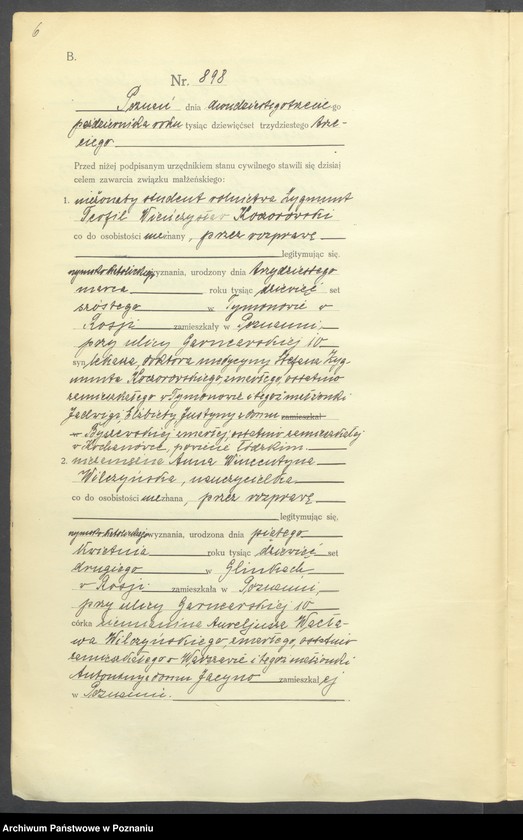 6
B.
Nr. 898
Poznań dnia dwudziestego trzeciego
października roku tysiąc dziewięćset trzydziestego trze-
ciego.
Przed niżej podpisanym urzędnikiem stanu cywilnego stawili się dzisiaj
celem zawarcia związku małżeńskiego:
1. nieżonaty student rolnictwa Zygmunt
Teofil Wieńczysław Kozorowski
co do osobistości nieznany, przez rozprawę
legitymując się.
rzymsko katolickiego wyznania, urodzony dnia trzydziestego
marca roku tysiąc dziewięć set
szóstego w Tymonowie w
Rosji zamieszkały w Poznaniu,
przy ulicy Garncarskiej 10
syn lekarza, doktora medycyny Stefana Zyg-
munta Kozorowskiego, zmarłego, ostatnio
zamieszkałego w Tymonowie i tegoż małżonki
Jadwigi, Elżbiety Justyny z domu zamieszkał
w Byszewskiej zmarłej, ostatnio zamieszkałej
w powiecie Łódzkim.
2. niezamężna Anna Wincentyna
Wilczyńska, nauczycielka
co do osobistości nieznana, przez rozprawę
legitymując się,
rzymsko katolickiego wyznania, urodzona dnia piątego
kwietnia roku tysiąc dziewięć set
drugiego w Glinkach
w Rosji zamieszkała w Poznaniu,
przy ulicy Garncarskiej 10
córka ziemianina Aureljusza Wacła-
wa Wilczyńskiego, zmarłego, ostatnio
zamieszkałego w Warszawie i tegoż małżonki
Antoniny z domu Jacyno zamieszkałej
w Poznaniu.
Archiwum Państwowe w Poznaniu